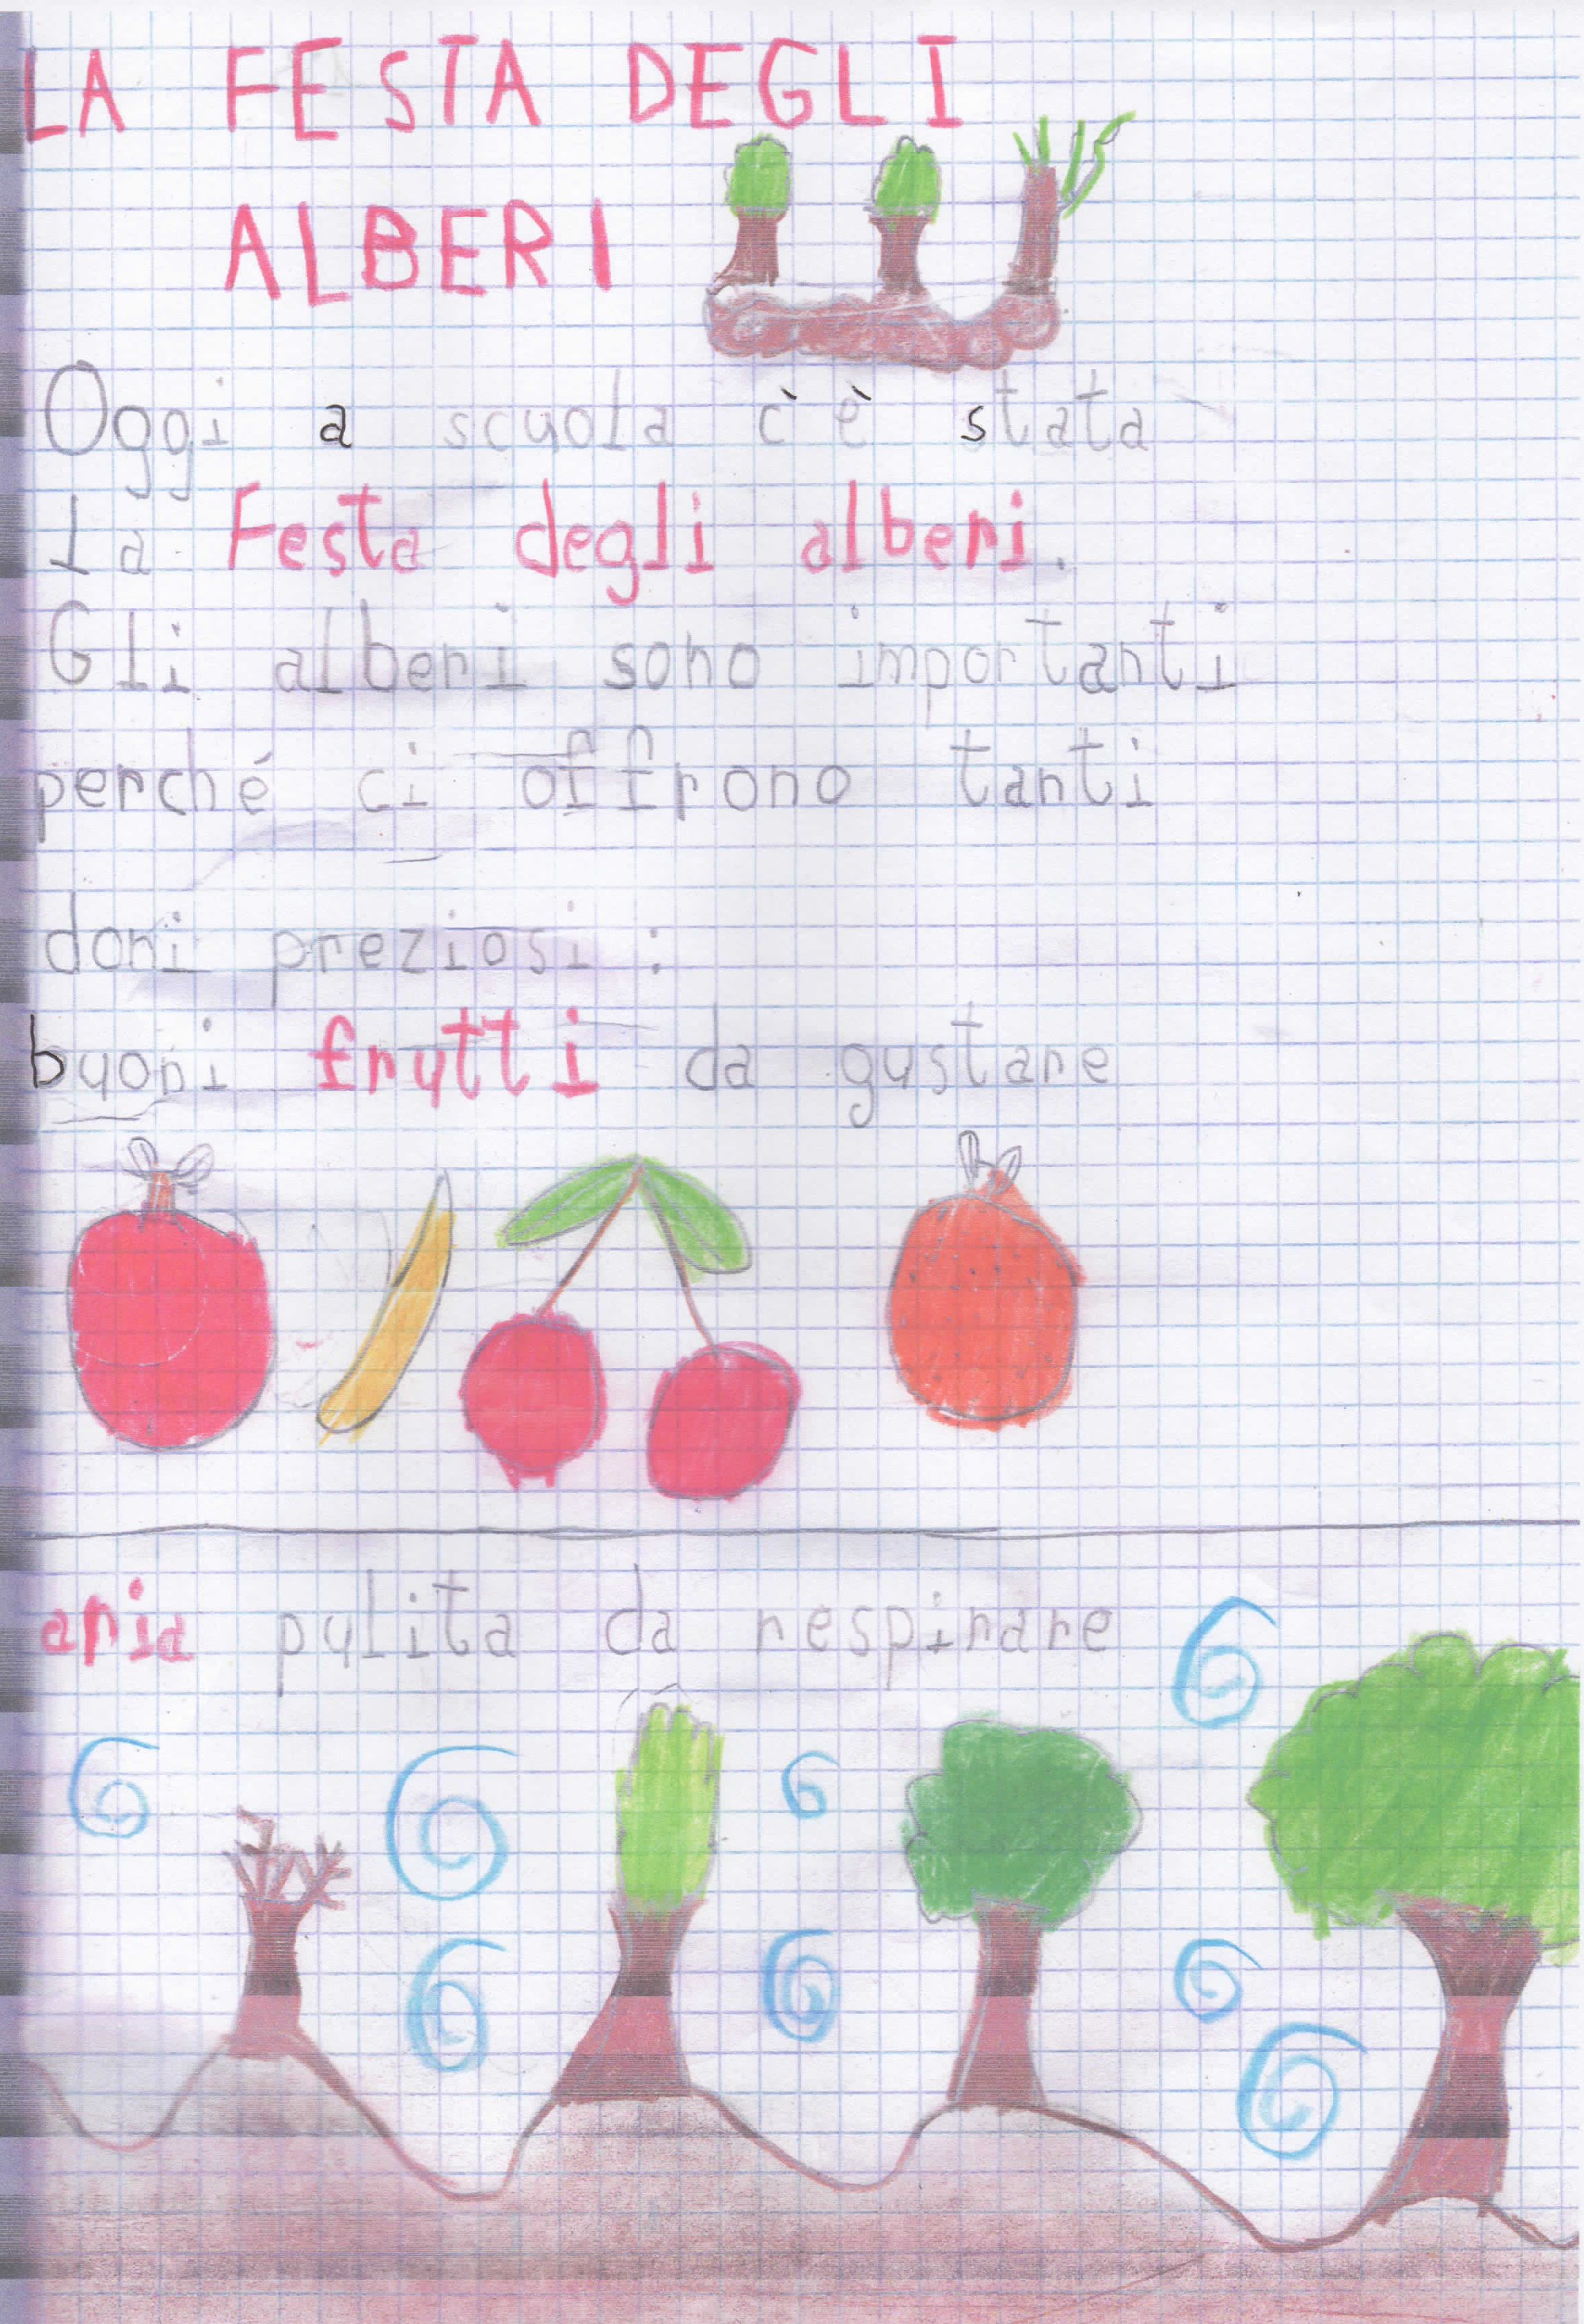 LA FESTA DEGLI
ALBERI
Oggi a scuola c'è stata
la Festa degli alberi.
Gli alberi sono importanti
perché ci offrono tanti
doni preziosi:
buoni frutti da gustare
aria pulita da respirare